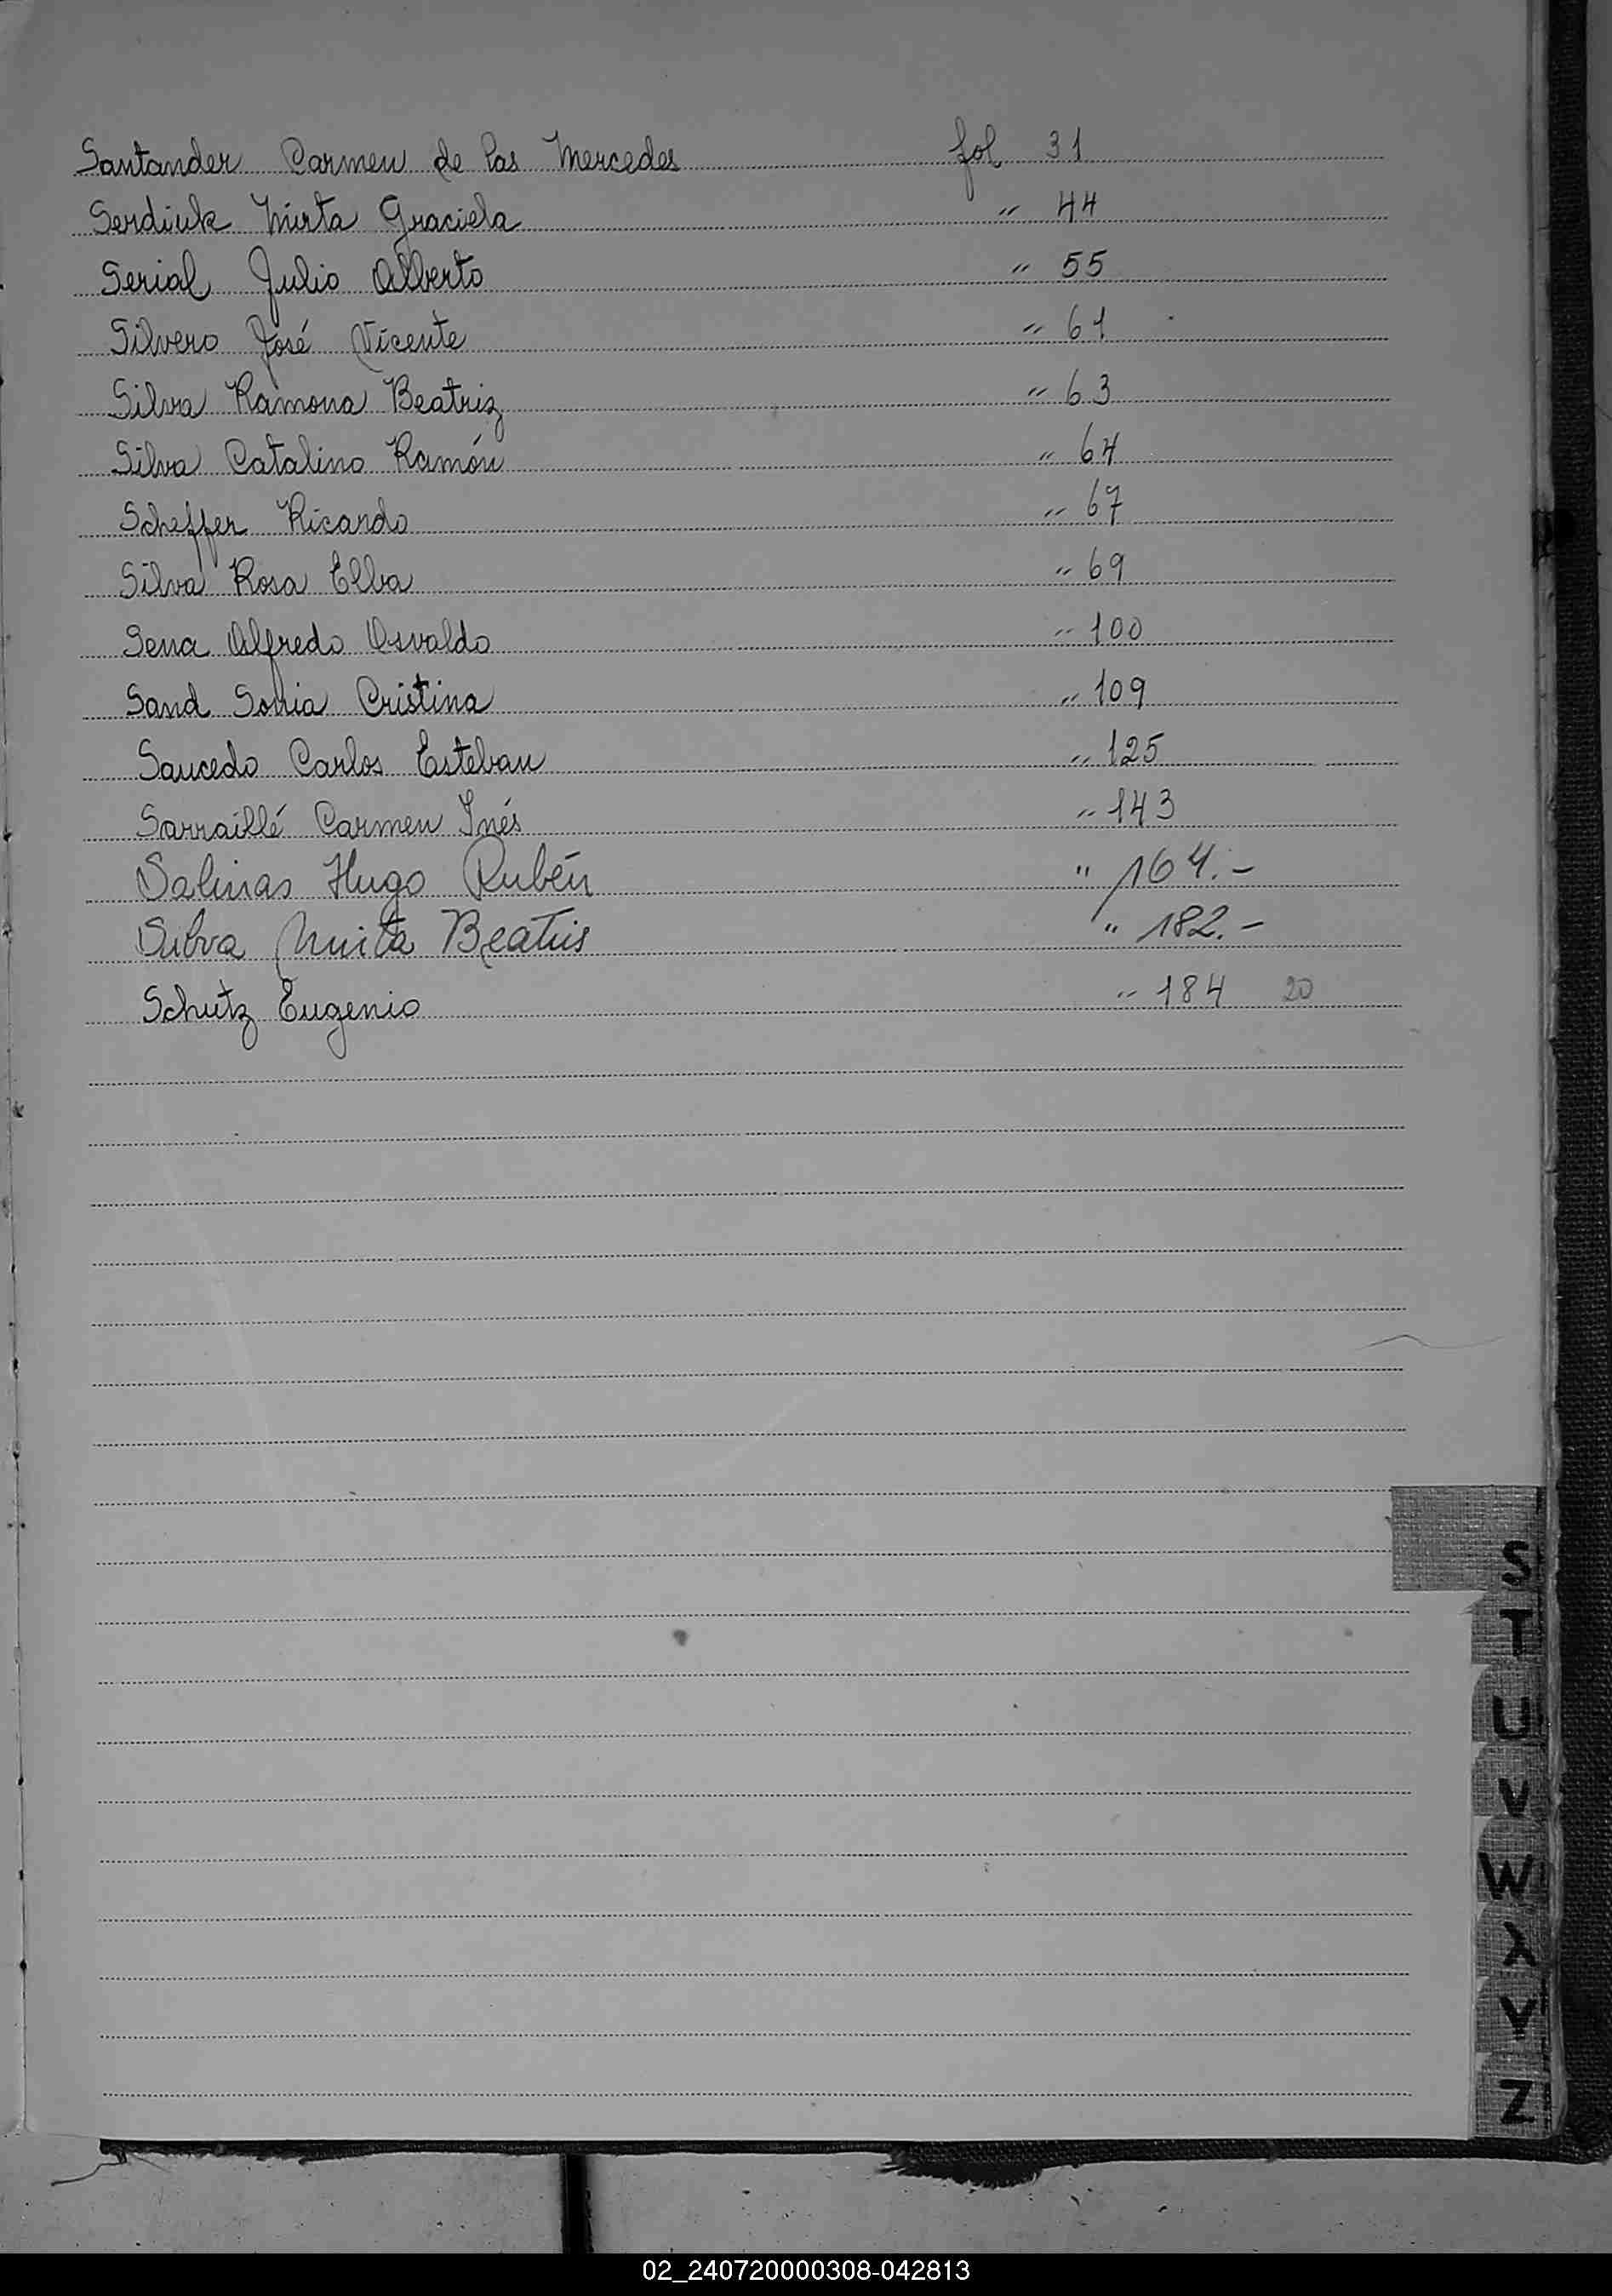 Santander Carmen de las Mercedes fol 31
Serdiuk Mirta Graciela " 44
Serial Julio Alberto " 55
Silvero José Vicente " 61
Silva Ramona Beatriz " 63
Silva Catalino Ramón " 64
Scheffer Ricardo " 67
Silva Rosa Elba " 69
Sena Alfredo Osvaldo " 100
Sand Sonia Cristina " 109
Saucedo Carlos Esteban " 125
Sarraillé Carmen Inés " 143
Salinas Hugo Rubén " 164.-
Silva Mirta Beatris " 182.-
Schutz Eugenio " 184 20
S
T
U
V
W
X
Y
Z
02_240720000308-042813